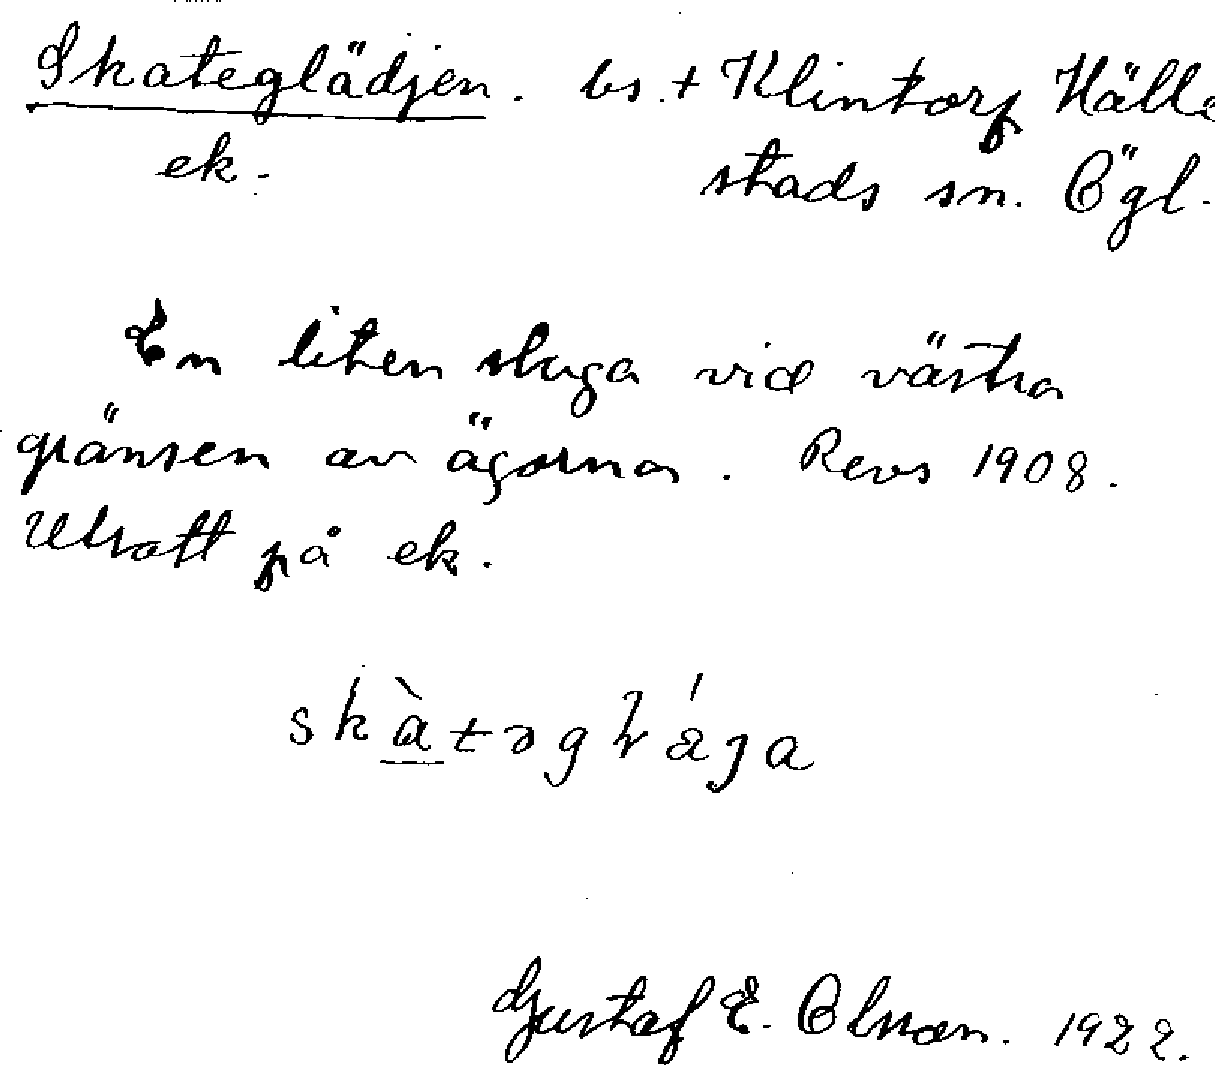 Skateglädjen. bs. + Klintorp Hälle
ek. stads sn. Ögl.
En liten stuga vid västra
gränsen av ägorna. Revs 1908.
Utsatt på ek.
Gustaf E. Olsson. 1922.